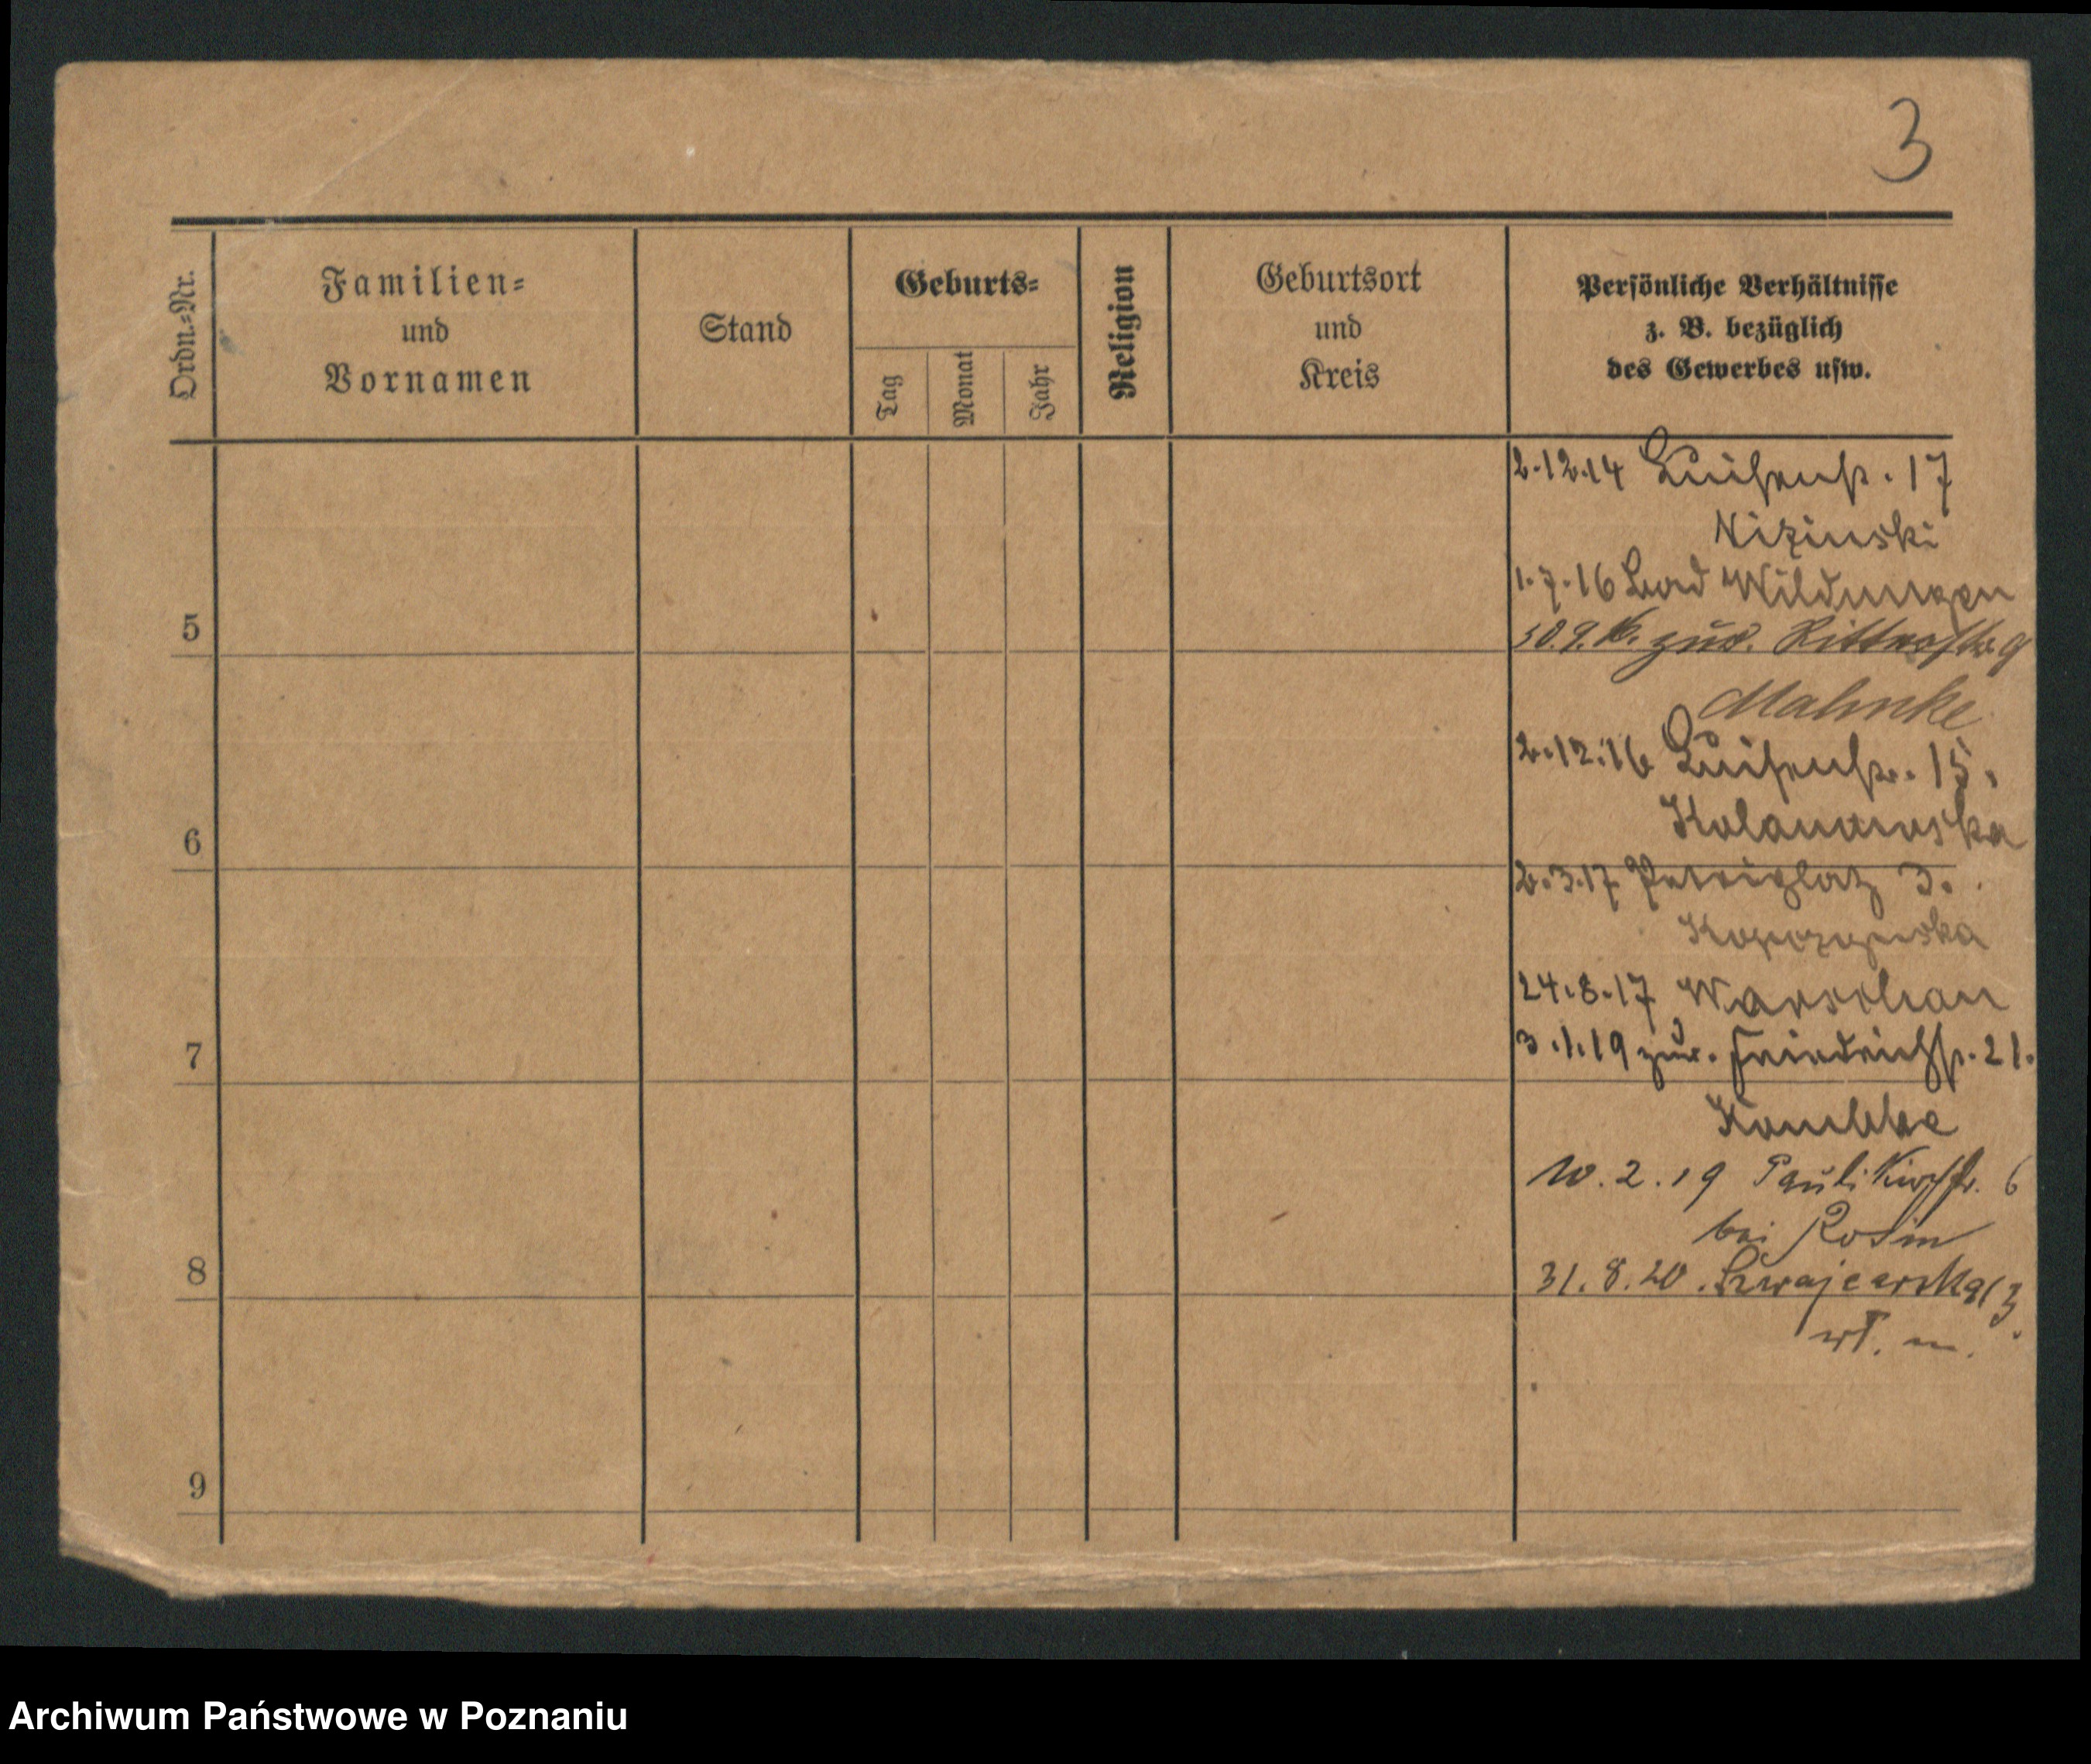 3
Ordn.-Nr.
Familien-
und
Vornamen
Stand
Geburts-
Tag
Monat
Jahr
Religion
Geburtsort
und
Kreis
Persönliche Verhältnisse
z. B. bezüglich
des Gewerbes usw.
2.12.14 Luisenstr. 17
Nizinski
1.7.16 Bad Wildungen
5
30.9.16. zur. Ritterstr. 9
Mahnke
2.12.16 Luisenstr. 15.
6
2.3.17 Petriplatz 3.
24.8.17 Warschau
7
3.1.19 zur. Friedrichstr. 21.
10.2.19 Paulikirchstr. 6
bei Rosin
8
31.8.20. Szwajcarska 13
wł. m.
9
Archiwum Państwowe w Poznaniu